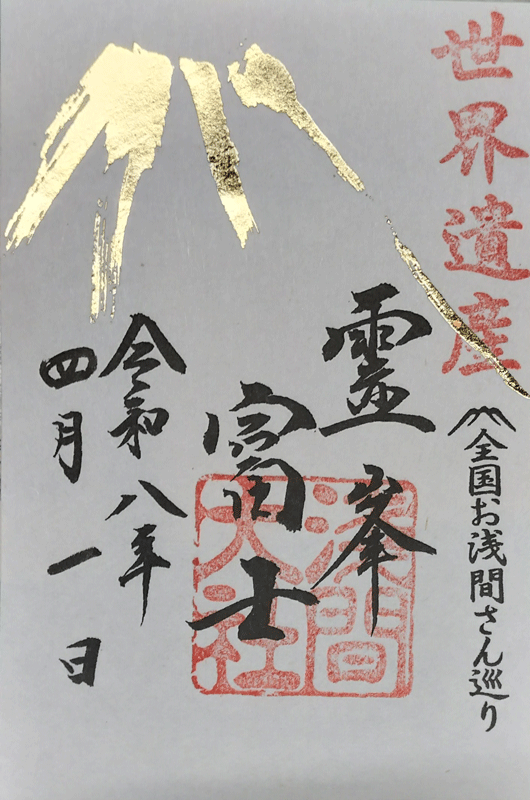 世界遺産
全国お浅間さん巡り
霊峯
富士
浅間
大社
令和八年
四月一日